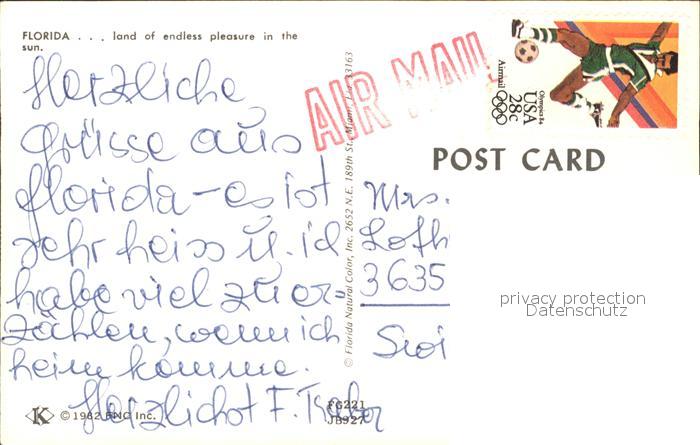 FLORIDA . . . land of endless pleasure in the
sun.
Herzliche
Grüsse aus
Florida - es ist
sehr heiss u. ich
habe viel zu er=
zählen, wenn ich
heim komme.
Herzlichst F.
K © 1982 ENC Inc.
FG221
JB927
© Florida Natural Color, Inc. 2652 N.E. 189th St., Miami, Fla. 33163
AIR MAIL
Olympics 84
USA
28c
Airmail
POST CARD
Mrs.
3635
privacy protection
Datenschutz